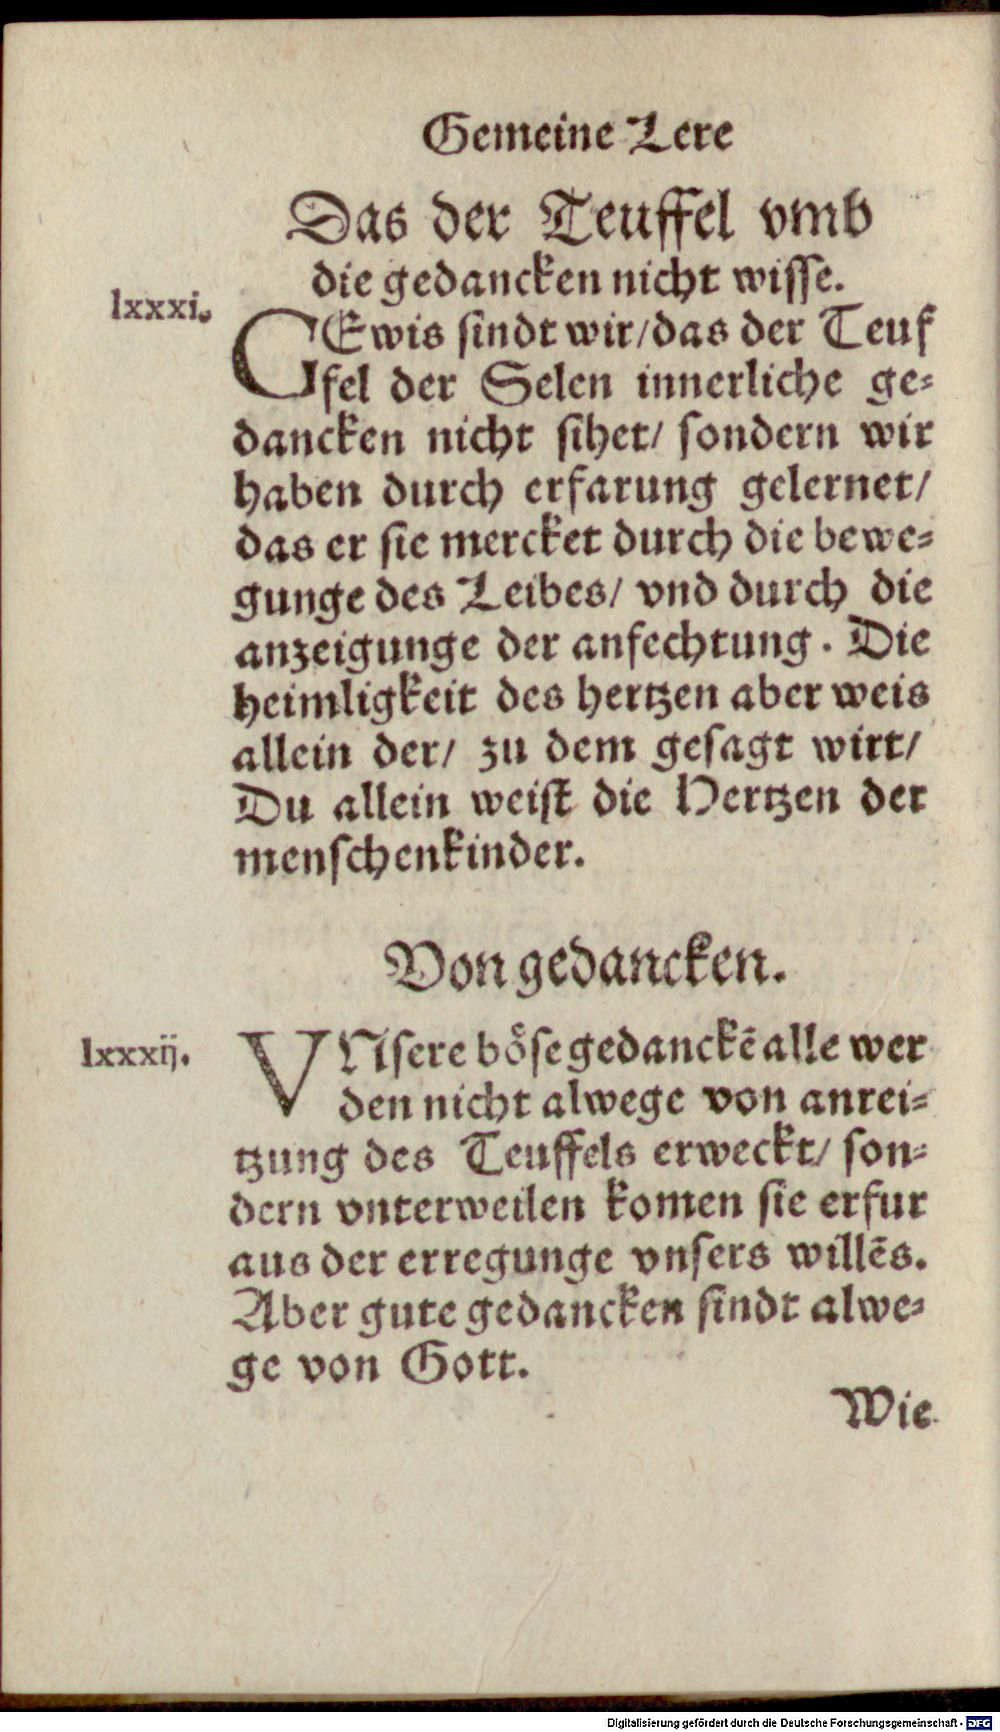 Gemeine Lere
Das der Teuffel vmb
die gedancken nicht wisse.
lxxxi.
GEwis sindt wir/das der Teuf
fel der Selen innerliche ge⸗
dancken nicht sihet/ sondern wir
haben durch erfarung gelernet/
das er sie mercket durch die bewe⸗
gunge des Leibes/ vnd durch die
anzeigunge der anfechtung. Die
heimligkeit des hertzen aber weis
allein der/ zu dem gesagt wirt/
Du allein weist die Hertzen der
menschenkinder.
Von gedancken.
lxxxij.
VNsere böse gedanckē alle wer
den nicht alwege von anrei⸗
tzung des Teuffels erweckt/ son⸗
dern vnterweilen komen sie erfur
aus der erregunge vnsers willēs.
Aber gute gedancken sindt alwe⸗
ge von Gott.
Wie
Digitalisierung gefördert durch die Deutsche Forschungsgemeinschaft - DFG